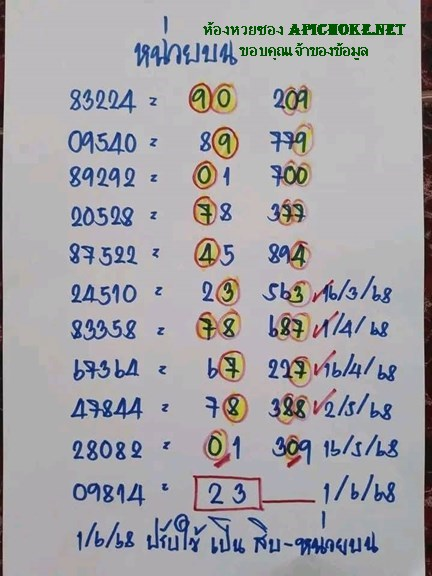 ห้องหวยซอง APICHOKE.NET
ขอบคุณเจ้าของข้อมูล
หน่วยบน
83224 = 90 209
09540 = 89 779
89292 = 01 700
20528 = 78 377
87522 = 45 894
24510 = 23 563 ✓16/3/68
83358 = 78 687 ✓1/4/68
67364 = 67 227 ✓16/4/68
47844 = 78 388 ✓2/5/68
28082 = 01 309 16/5/68
09814 = 23 1/6/68
1/6/68 ปรับใช้ เป็น สิบ-หน่วยบน